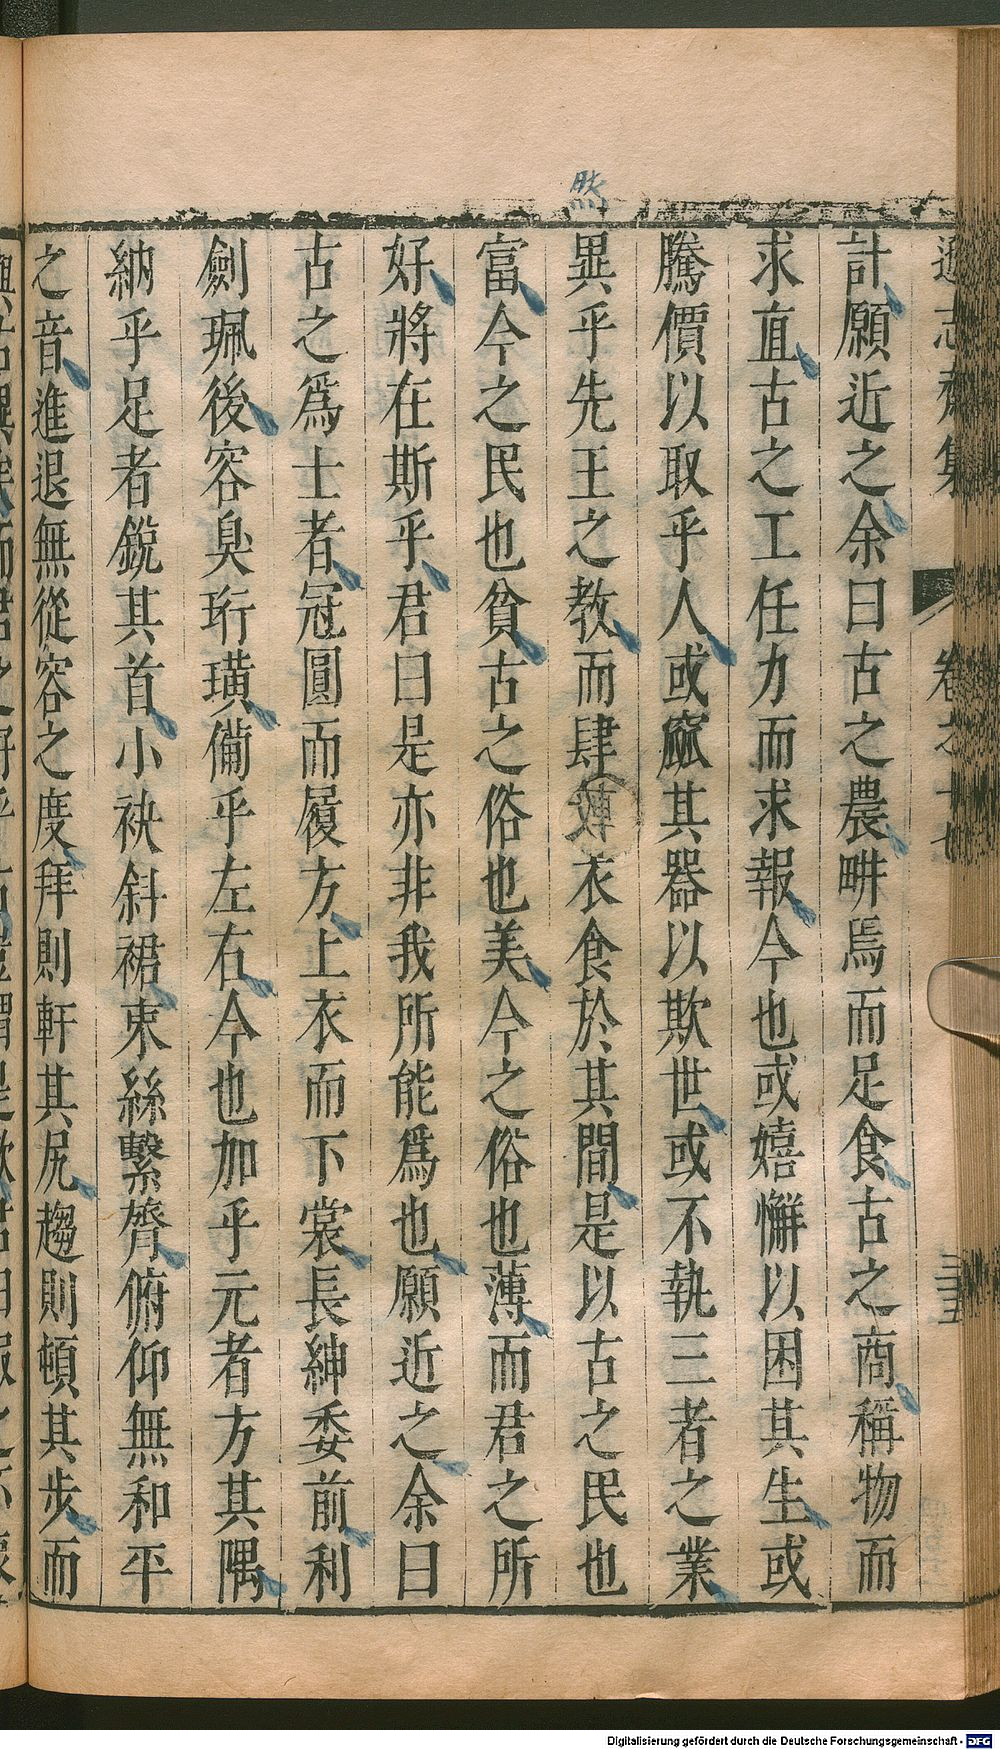 遜志齋集
卷之十七
三五
計願近之余曰古之農畊焉而足食古之商稱物而
求直古之工任力而求報今也或嬉懈以困其生或
騰價以取乎人或窳其器以欺世或不執三者之業
異乎先王之教而肆僤衣食於其間是以古之民也
富今之民也貧古之俗也美今之俗也薄而君之所
好將在斯乎君曰是亦非我所能爲也願近之余曰
古之爲士者冠圓而履方上衣而下裳長紳委前利
劍珮後容臭珩璜備乎左右今也加乎元者方其隅
納乎足者銳其首小袂斜裙束絲繫膂俯仰無和平
之音進退無從容之度拜則軒其尻趨則頓其步而
Digitalisierung gefördert durch die Deutsche Forschungsgemeinschaft - DFG